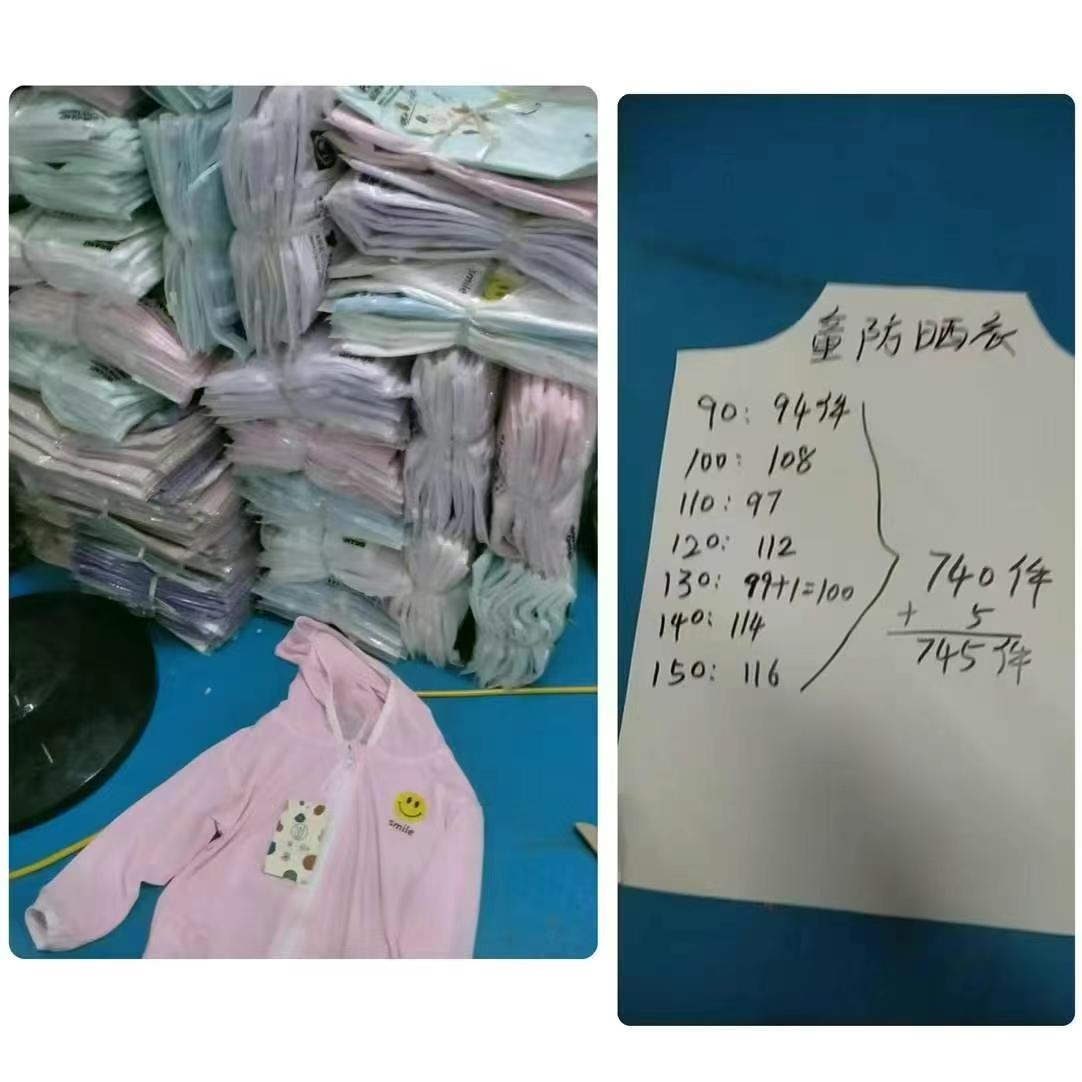 smile
smile
童防晒衣
90: 94件
100: 108
110: 97
120: 112
130: 99+1=100
140: 114
150: 116
740件
+ 5
745件